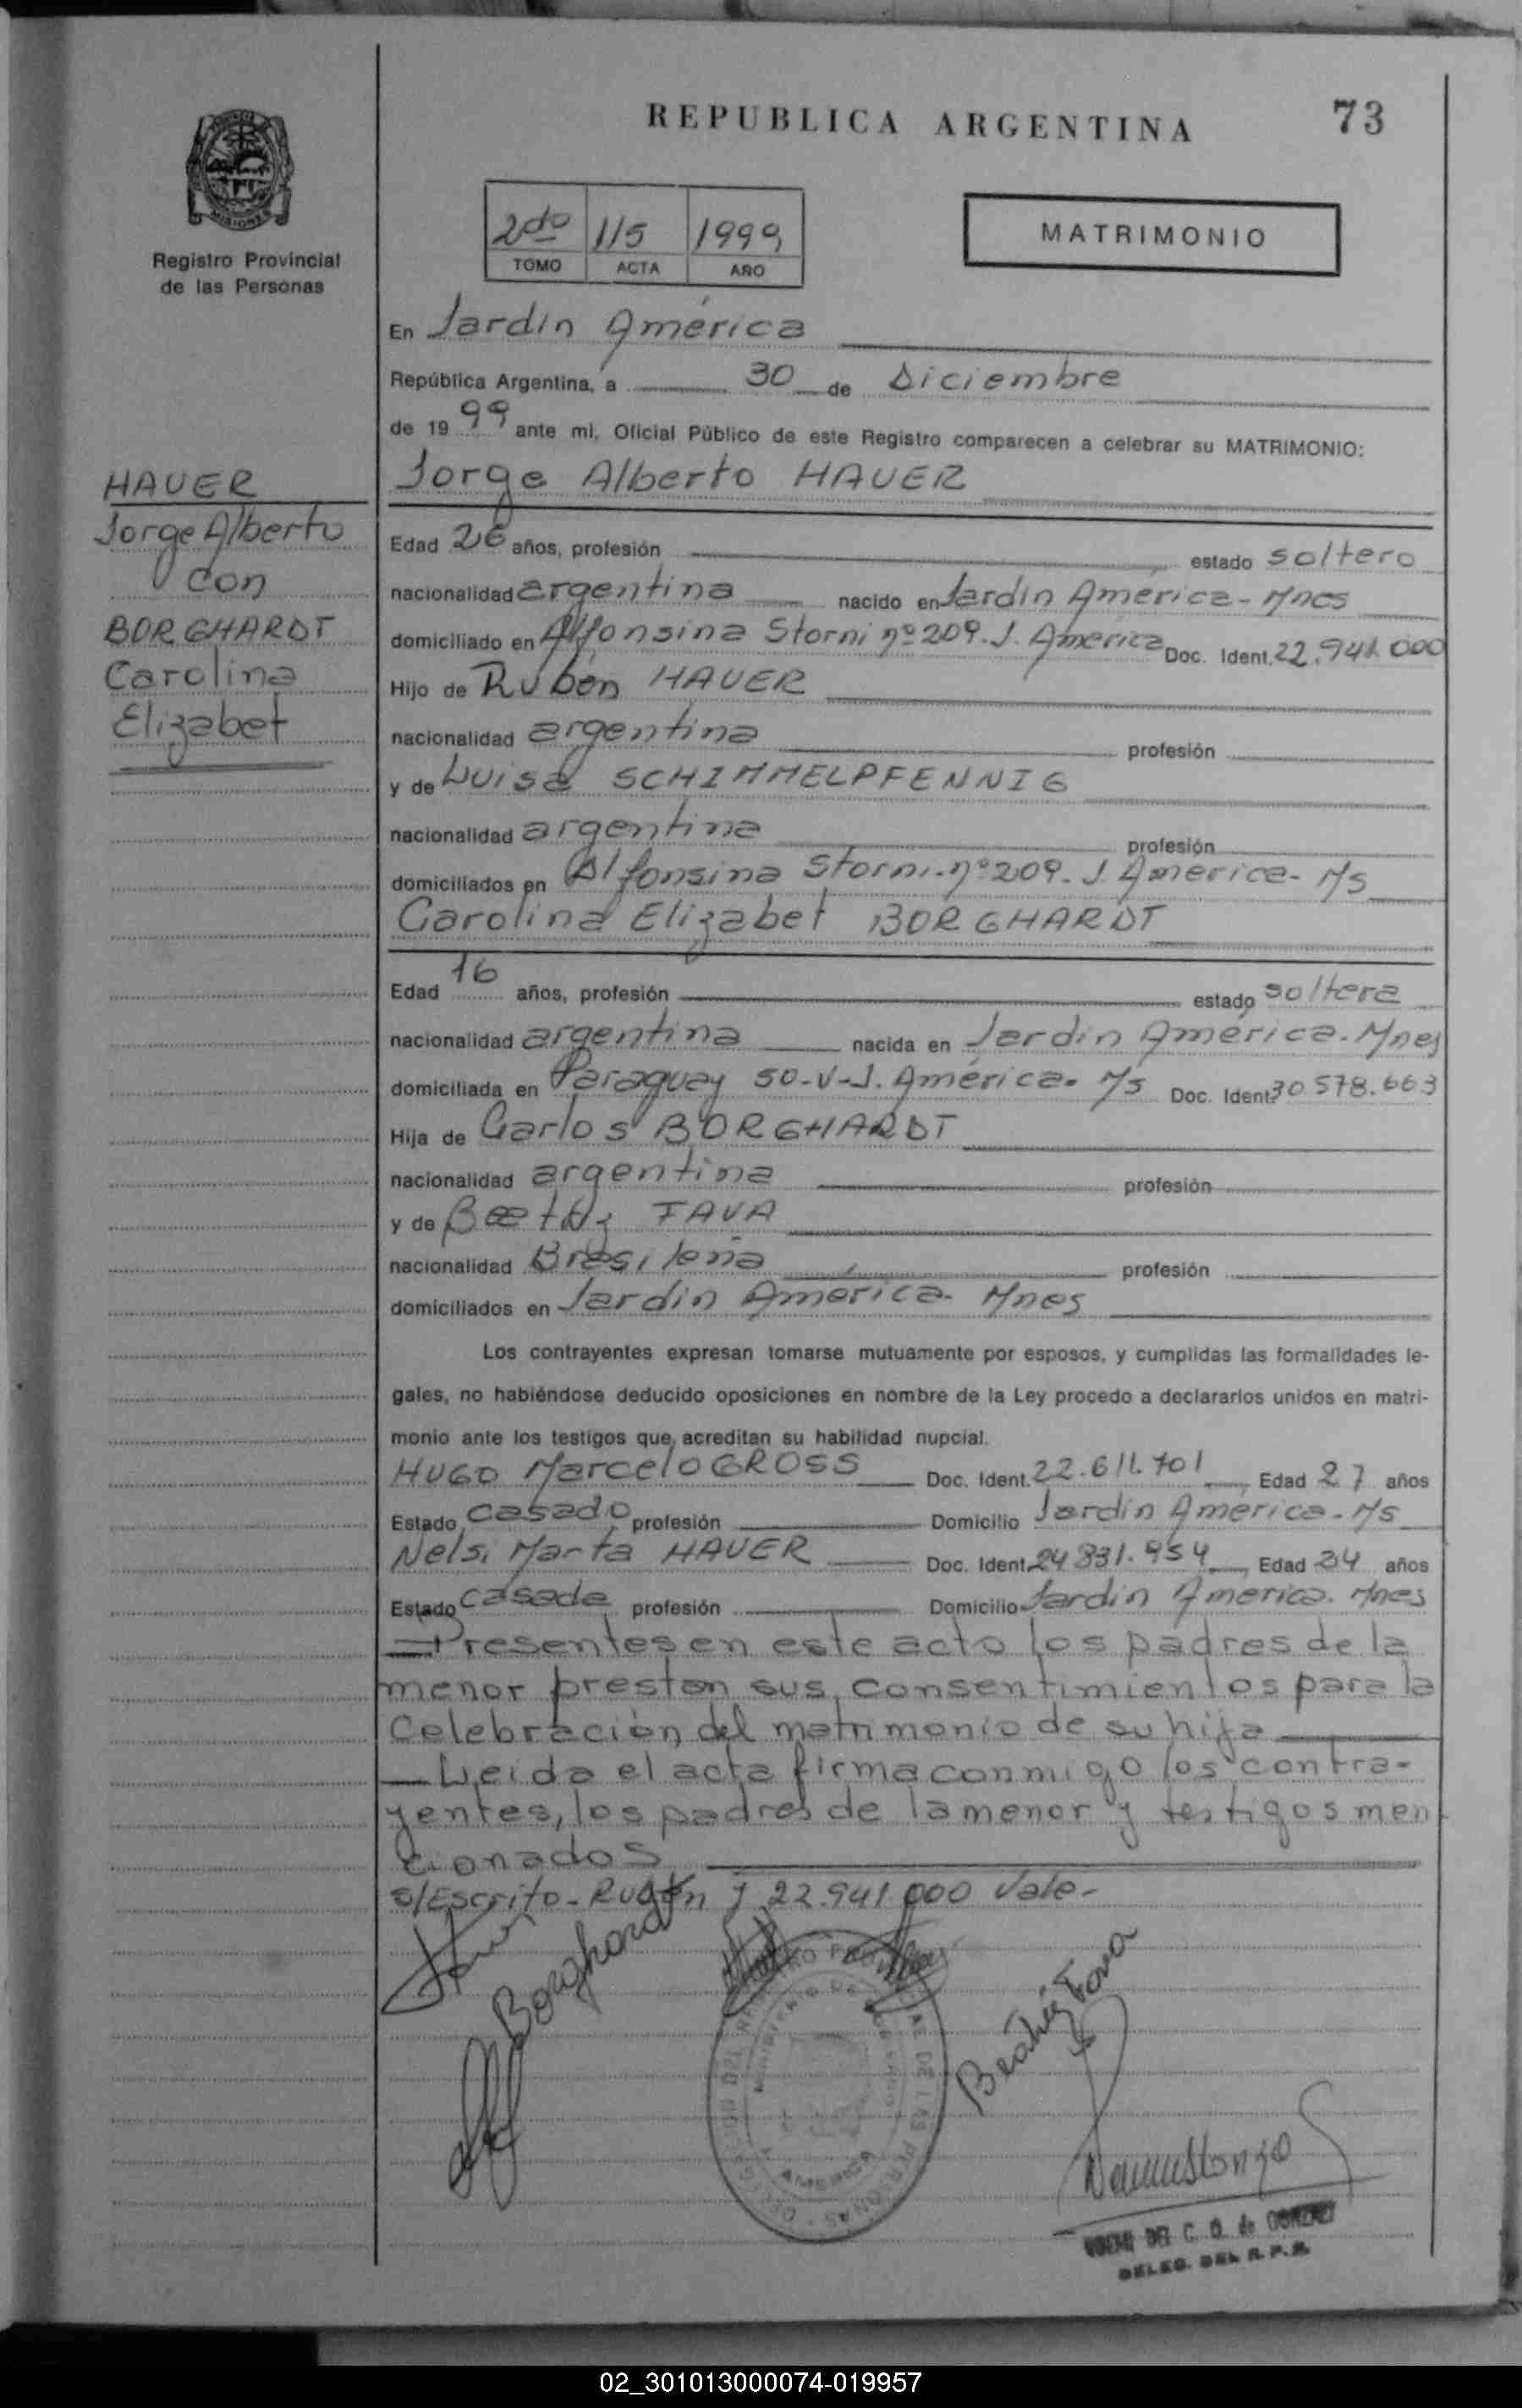 REPUBLICA ARGENTINA
73
2do 115 1999
TOMO ACTA AÑO
MATRIMONIO
Registro Provincial
de las Personas
HAUER
Jorge Alberto
con
BORGHARDT
Carolina
Elizabet
En Jardín América
República Argentina, a 30 de Diciembre
de 1999 ante mi, Oficial Público de este Registro comparecen a celebrar su MATRIMONIO:
Jorge Alberto HAUER
Edad 26 años, profesión estado soltero
nacionalidad argentina nacido en Jardín América - Mnes
domiciliado en Alfonsina Storni nº 209. J. América Doc. Ident. 22.941.000
Hijo de Rubén HAUER
nacionalidad argentina profesión
y de Luisa SCHIMMELPFENNIG
nacionalidad argentina profesión
domiciliados en Alfonsina Storni. nº 209. J. América - Ms
Carolina Elizabet BORGHARDT
Edad 16 años, profesión estado soltera
nacionalidad argentina nacida en Jardín América. Mnes
domiciliada en Paraguay 50-V-J. América. Ms Doc. Ident. 30.578.663
Hija de Carlos BORGHARDT
nacionalidad argentina profesión
y de Beatriz FAVA
nacionalidad Brasileña profesión
domiciliados en Jardín América - Mnes
Los contrayentes expresan tomarse mutuamente por esposos, y cumplidas las formalidades le-
gales, no habiéndose deducido oposiciones en nombre de la Ley procedo a declararlos unidos en matri-
monio ante los testigos que acreditan su habilidad nupcial.
HUGO Marcelo GROSS Doc. Ident. 22.611.701 Edad 27 años
Estado casado profesión Domicilio Jardín América - Ms
Nelsi Marta HAUER Doc. Ident. 24.831.954 Edad 34 años
Estado casada profesión Domicilio Jardín América. Mnes
Presentes en este acto los padres de la
menor prestan sus consentimientos para la
Celebración del matrimonio de su hija
Leida el acta firma conmigo los contra-
yentes, los padres de la menor y testigos men
cionados
s/Escrito - Rubén y 22.941.000 Vale.
Borghardt
Beatriz Fava
AMERICA
DELEG. DEL R.P.P.
02_301013000074-019957